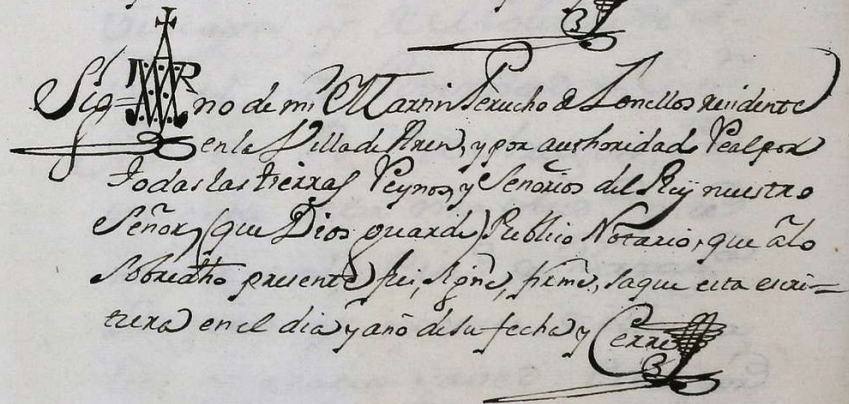 Sig= no de mi Martin Perucho de Tonellos residente
en la Villa de Aren, y por authoridad Real por
todas las tierras Reynos, y Señorios del Rey nuestro
Señor, (que Dios guarde) Publico Notario, que a lo
Sobredho presente fui, signe, firme, saque esta escri=
tura en el dia y año de su fecha y Cerre